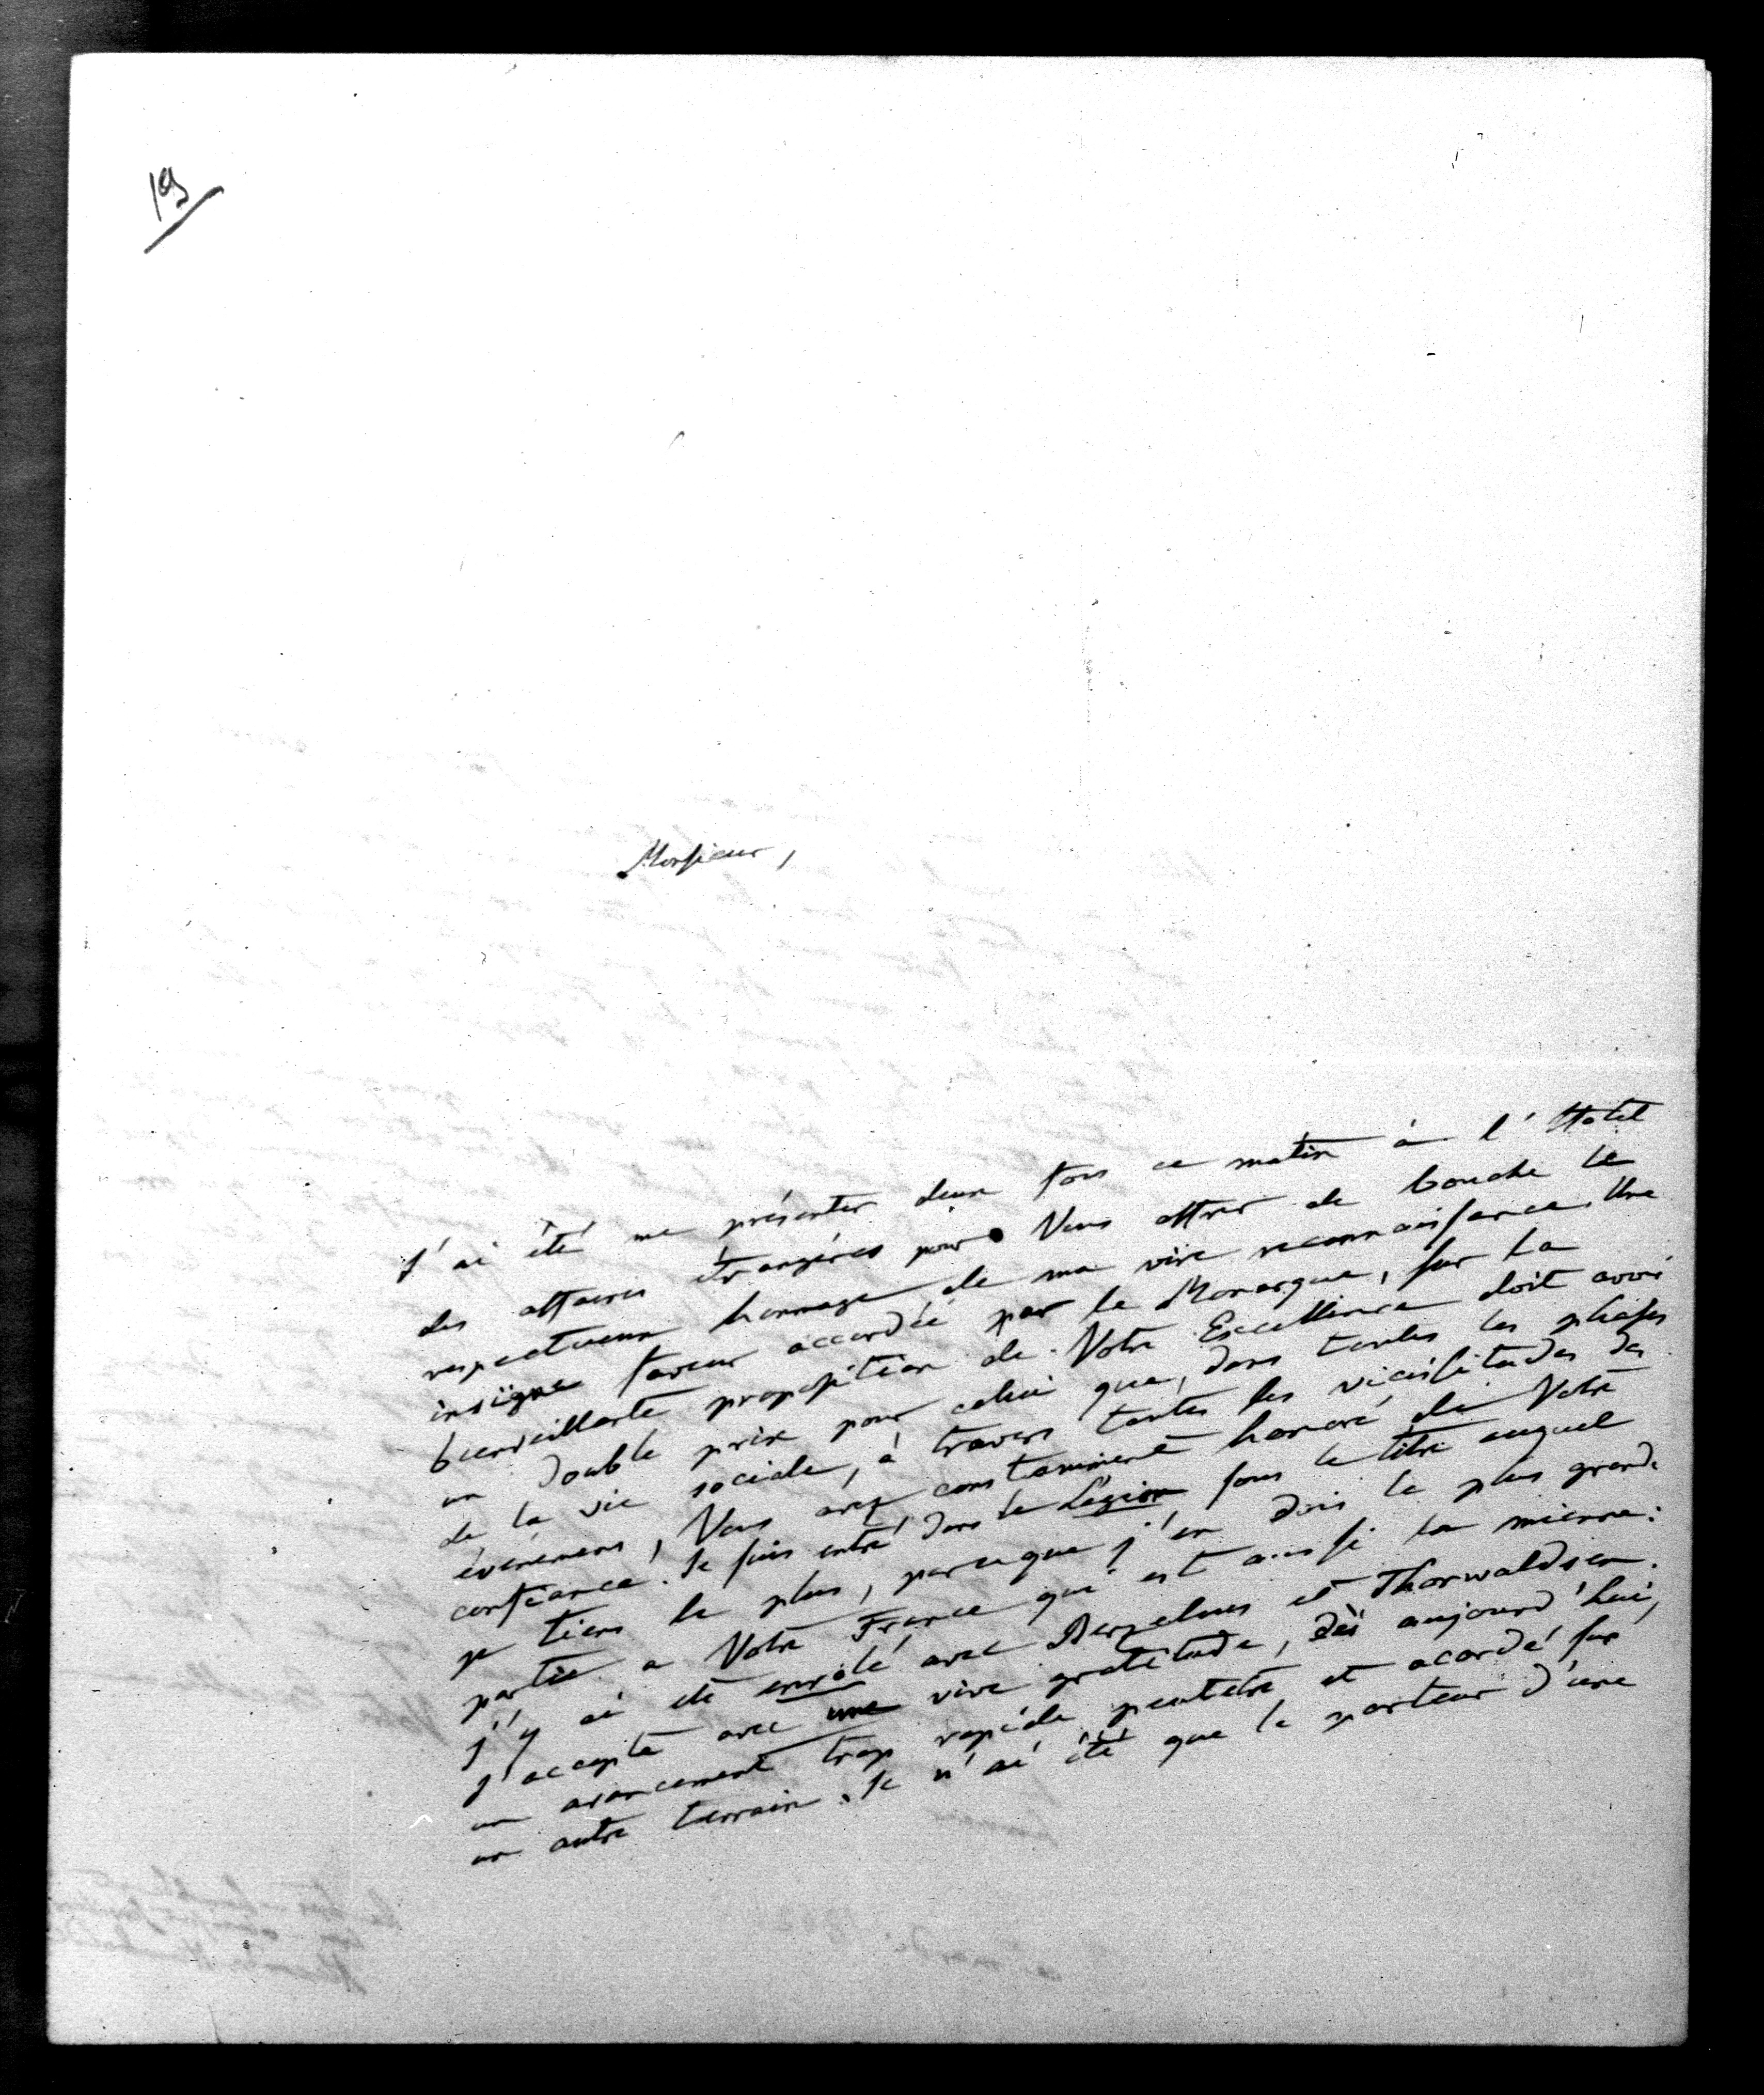 19
Monsieur,
J'ai été me présenter deux fois ce matin à l'Hotel
des affaires étrangères pour Vous offrir de bouche le
respectueux hommage de ma vive reconnaissance. Une
insigne faveur accordée par le Monarque, sur la
bienveillante proposition de Votre Excellence doit avoir
un double prix pour celui que, dans toutes les phases
de la vie sociale, à travers toutes les vicissitudes des
événemens, Vous avez constamment honoré de Votre
confiance. Je suis entré dans la Légion sous le titre auquel
je tiens le plus, parceque j'en dois la plus grande
partie a Votre France qui est aussi la mienne:
j'y ai été enrôlé avec Berzelius et Thorwaldsen.
J'accepte avec une vive gratitude, dès aujourd'hui,
un avancement trop rapide peutetre et acordé sur
un autre terrain. Je n'ai été que le porteur d'une